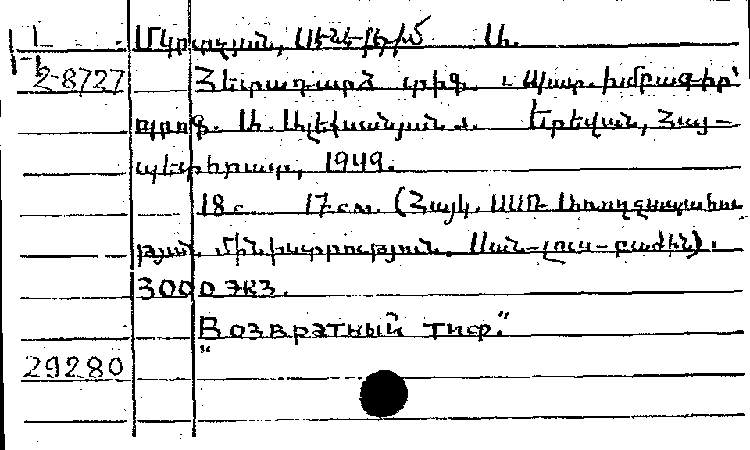 Մկրտչյան, Ա.
2-8727 Հետադարձ տիֆ. Պատ. խմբագիր՝
պրոֆ. Ա. Ալեքսանյան. Երևան, Հայ-
պետհրատ, 1949.
18 с 17 см. (Հայկ. ՍՍՌ Առողջապահու
թյան մինիստրություն. Սան-լուս-բաժին).
3000 экз.
"Возвратный тиф."
29280